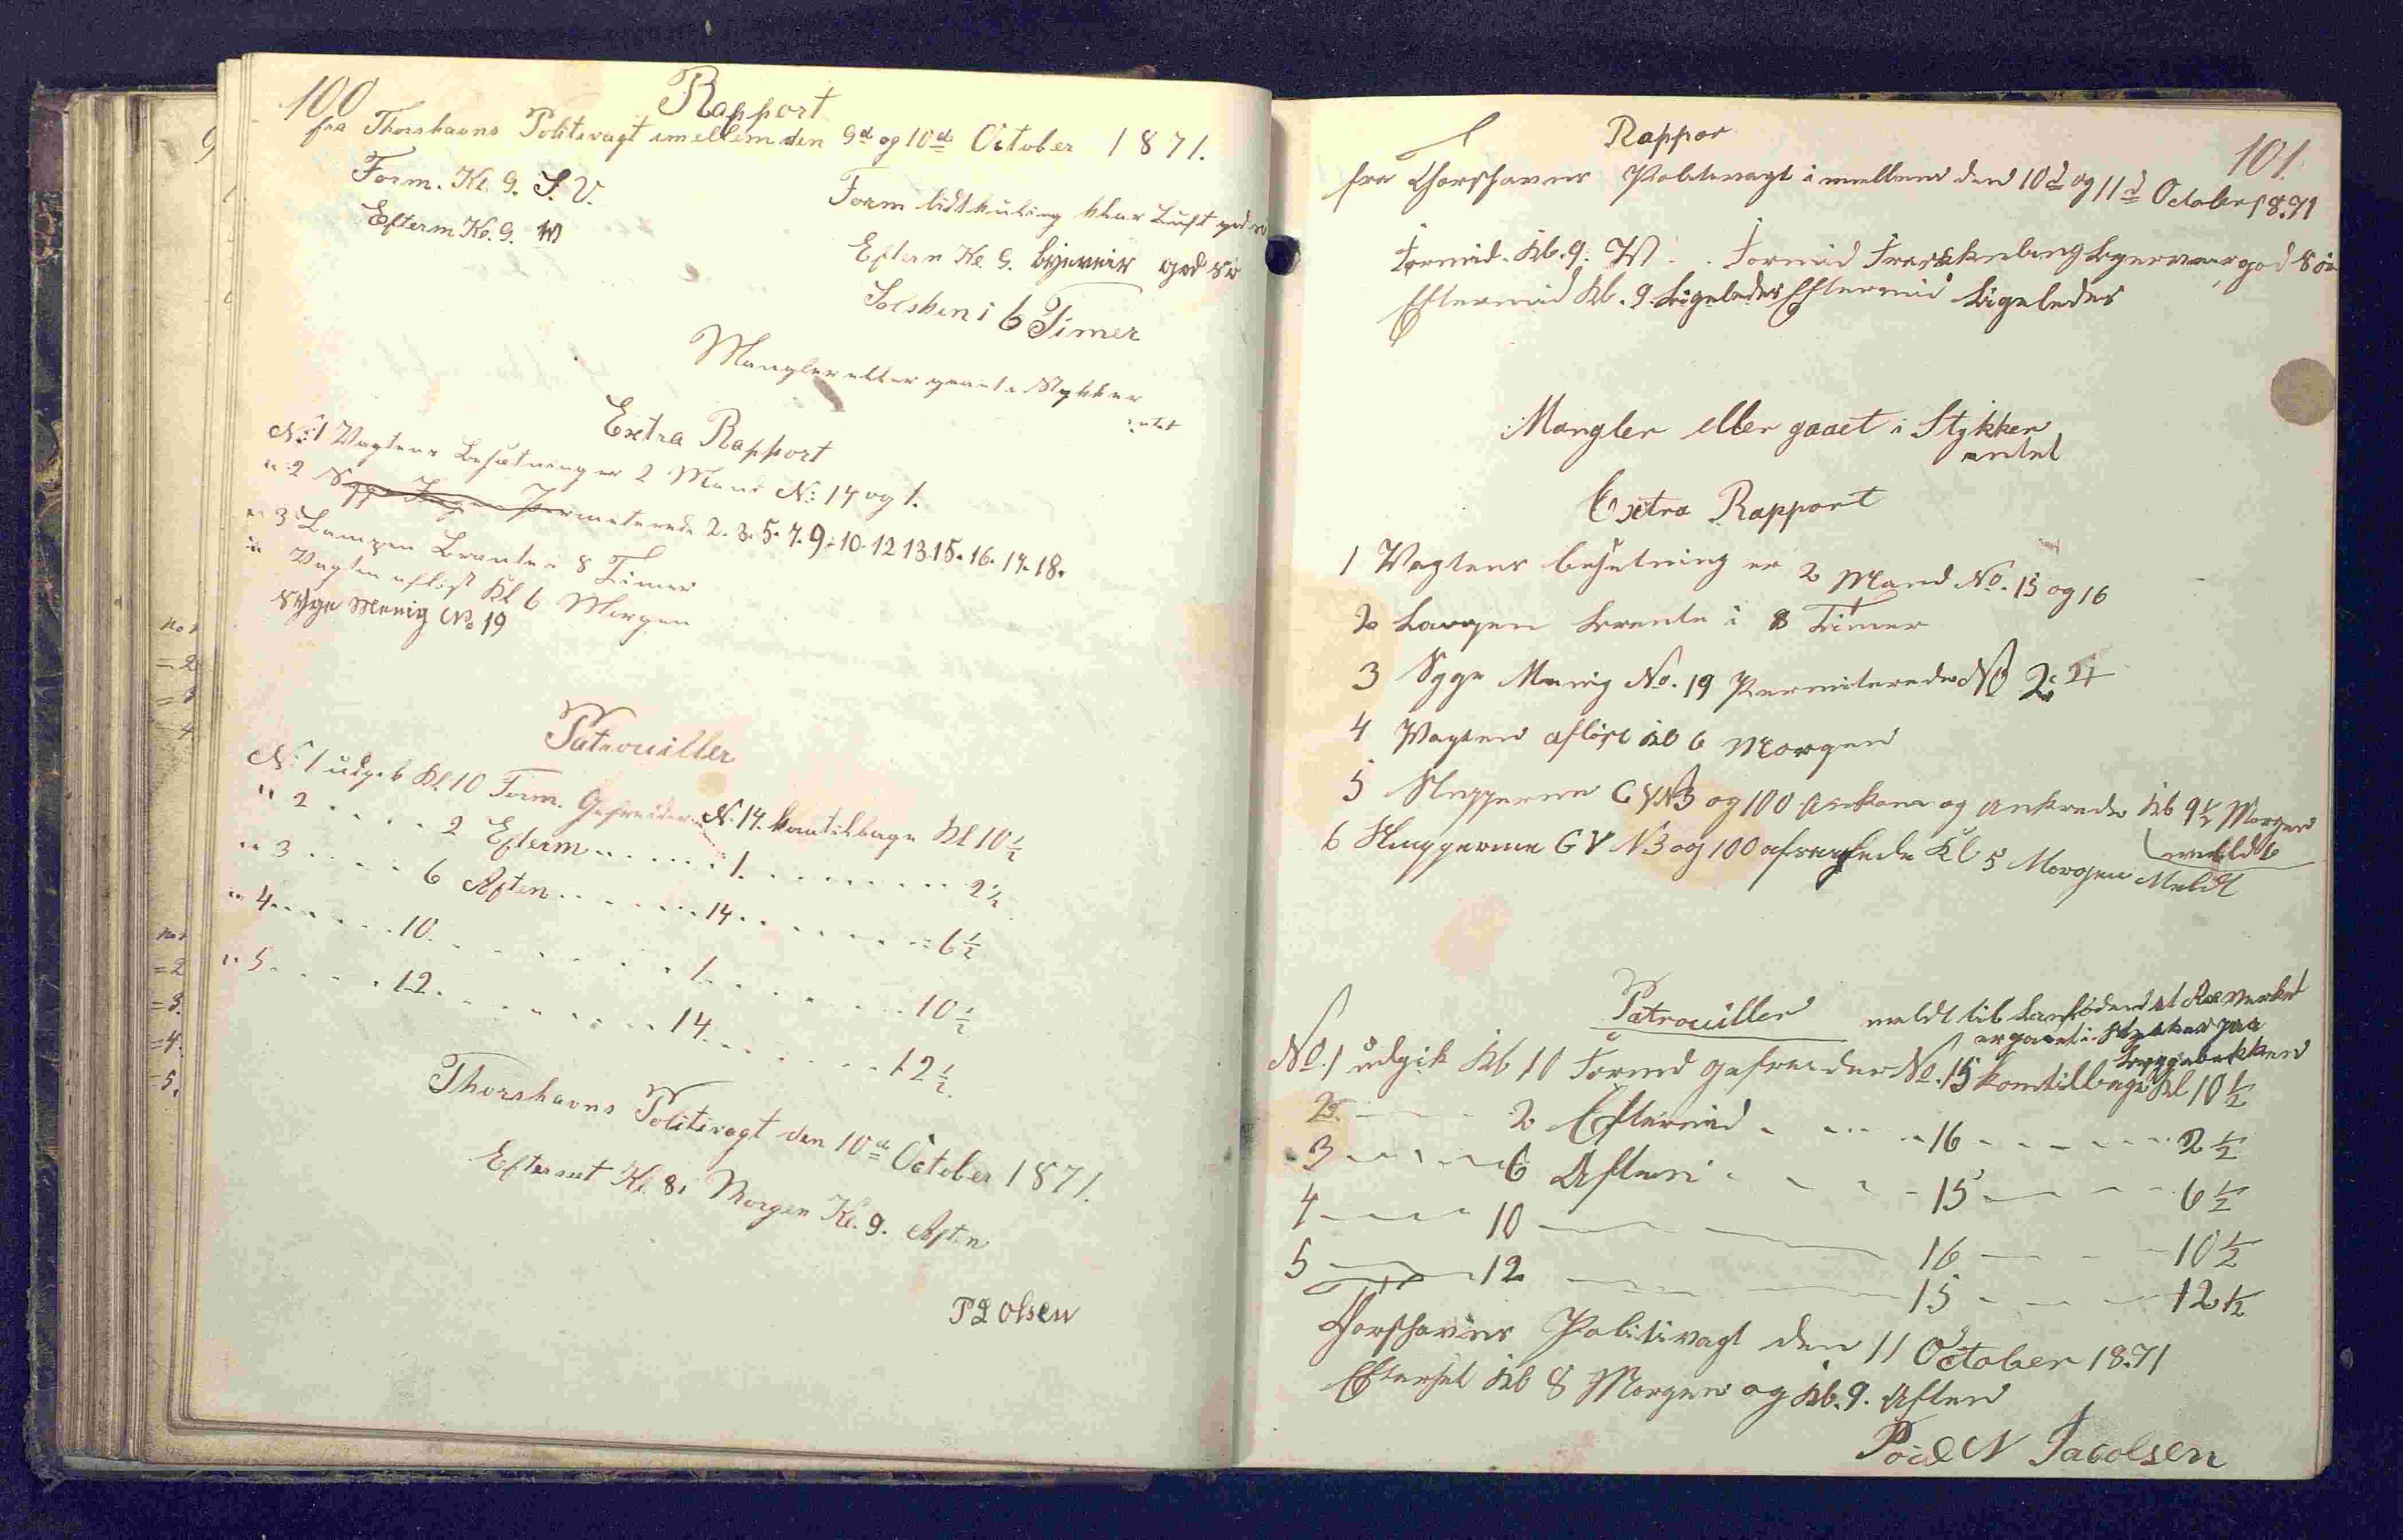 100
Rapport
fra Thorshavns Politivagt imellem den 9de og 10de October 1871.
Form. Kl. 9. S. V.
Form lidt kuling klar Luft god sø
Efterm Kl. 9. W
Eftern Kl. 9. byeveir god sø
Solsken i 6 Timer
Mangler eller gaaet i Stykker
intet
Extra Rapport
No: 1 Vagtens Besætning er 2 Mand No: 14 og 1.
" 2 Permeterede 2. 3. 5. 7. 9. 10. 12 13. 15. 16. 17. 18.
" 3 Lampen brænte i 8 Timer
" Vagten afløst Kl 6 Morgen
Syge Menig No 19
Patrouiller
No: 1 udgik Kl 10 Form. Gefreider No: 14. kom tilbage Kl 10 ½
" 2 . . . . . 2 Efterm . . . . . . 1. . . . . . . . . 2 ½
" 3 . . . . . 6 Aften . . . . . . 14. . . . . . . . 6 ½
" 4 . . . . . 10 . . . . . . . . 1. . . . . . . . 10 ½
" 5 . . . . . 12 . . . . . . . . 14. . . . . . . 12 ½
Thorshavns Politivagt den 10de October 1871.
Efterset Kl. 8. Morgen Kl. 9. Aften
P L Olsen
101.
Rappor
fra Thorshavns Politivagt imellem den 10d og 11d October 1871
Formid. Kl. 9. W. Formid Frisk kuling byeveir god Sø
Eftermid Kl. 9. Ligeledes Eftermid Ligeledes
Mangler eller gaaet i Stykker
intet
Extra Rapport
1 Vagtens besetning er 2 Mand No. 15 og 16
2 Lampen brente i 8 Timer
3 Syge Menig No. 19 Permiterede No 2. 4
4 Vagten afløst Kl 6 Morgen
5 Slupperne GV N3 og 100 ankom og ankrede Kl 9 ½ Morgen
meldt
6 Slupperne GV N3 og 100 afseglede Kl 5 Morgen Meldt
Patrouiller
meldt til at
er gaaet i Stykker paa
No. 1 udgik Kl 10 Formd gefreider No. 15 kom tilbage Kl 10 ½
2 - - - - 2 Eftermid - - - - 16 - - - - - 2 ½
3 - - - - 6 Aften - - - - 15 - - - - 6 ½
4 - - - - 10 - - - - 16 - - - - 10 ½
5 - - - - 12 - - - - 15 - - - - 12 ½
Thorshavns Politivagt den 11 October 1871
Efterset Kl 8 Morgen og Kl. 9. Aften
Poul N Jacobsen